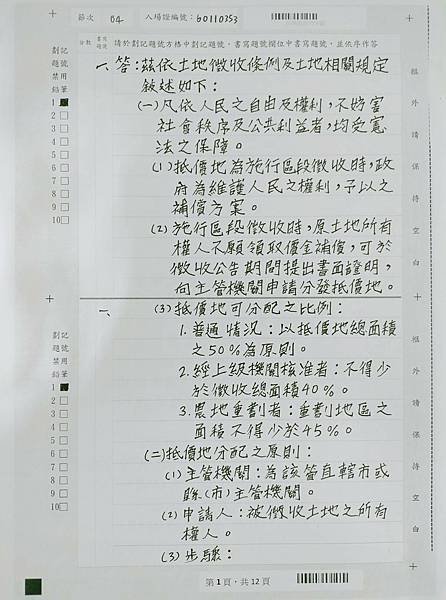 節次 04 入場證編號:60110353
分數 書寫題號 請於劃記題號方格中劃記題號,書寫題號欄位中書寫題號,並依序作答
劃記
題號
禁用
鉛筆
1
2
3
4
5
6
7
8
9
10
一、答:茲依土地徵收條例及土地相關規定
敘述如下:
(一)凡依人民之自由及權利,不妨害
社會秩序及公共利益者,均受憲
法之保障。
(1)抵價地為施行區段徵收時,政
府為維護人民之權利,予以之
補償方案。
(2)施行區段徵收時,原土地所有
權人不願領取價金補償,可於
徵收公告期間提出書面證明,
向主管機關申請分發抵價地。
劃記
題號
禁用
鉛筆
1
2
3
4
5
6
7
8
9
10
一、
(3)抵價地可分配之比例:
1.普通情況:以抵價地總面積
之50%為原則。
2.經上級機關核准者:不得少
於徵收總面積40%。
3.農地重劃者:重劃地區之
面積不得少於45%。
(二)抵價地分配之原則:
(1)主管機關:為該管直轄市或
縣(市)主管機關。
(2)申請人:被徵收土地之所有
權人。
(3)步驟:
框外請保持空白
框外請保持空白
第1頁,共12頁